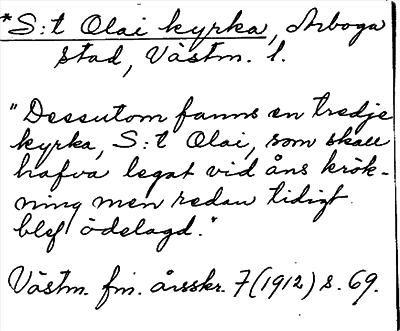 *S:t Olai kyrka, Arboga
stad, Västm. l.
"Dessutom fanns en tredje
kyrka, S:t Olai, som skall
hafva legat vid åns krök-
ning men redan tidigt
blef ödelagd."
Västm. fm. årsskr. 7 (1912) s. 69.